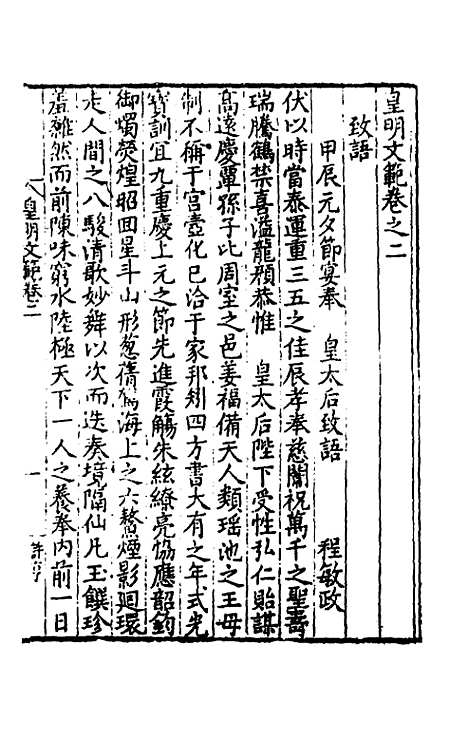 皇明文範卷之二
致語
甲辰元夕節宴奉　皇太后致語　程敏政
伏以時當泰運重三五之佳辰孝奉慈闈祝萬千之聖壽
瑞騰鶴禁喜溢龍顏恭惟　皇太后陛下受性弘仁貽謀
高遠慶覃孫子比周室之邑姜福備天人類瑶池之王母
制不稱于宮壼化已洽于家邦矧四方書大有之年式光
寳訓宜九重慶上元之節先進霞觴朱絃繚亮協應韶鈞
御燭熒煌昭回星斗山形葱蒨海上之六鰲煙影廻環
走人間之八駿清歌妙舞以次而迭奏境隔仙凡玉饌珍
羞雜然而前陳味窮水陸極天下一人之養奉内前一日
皇明文範卷二
一